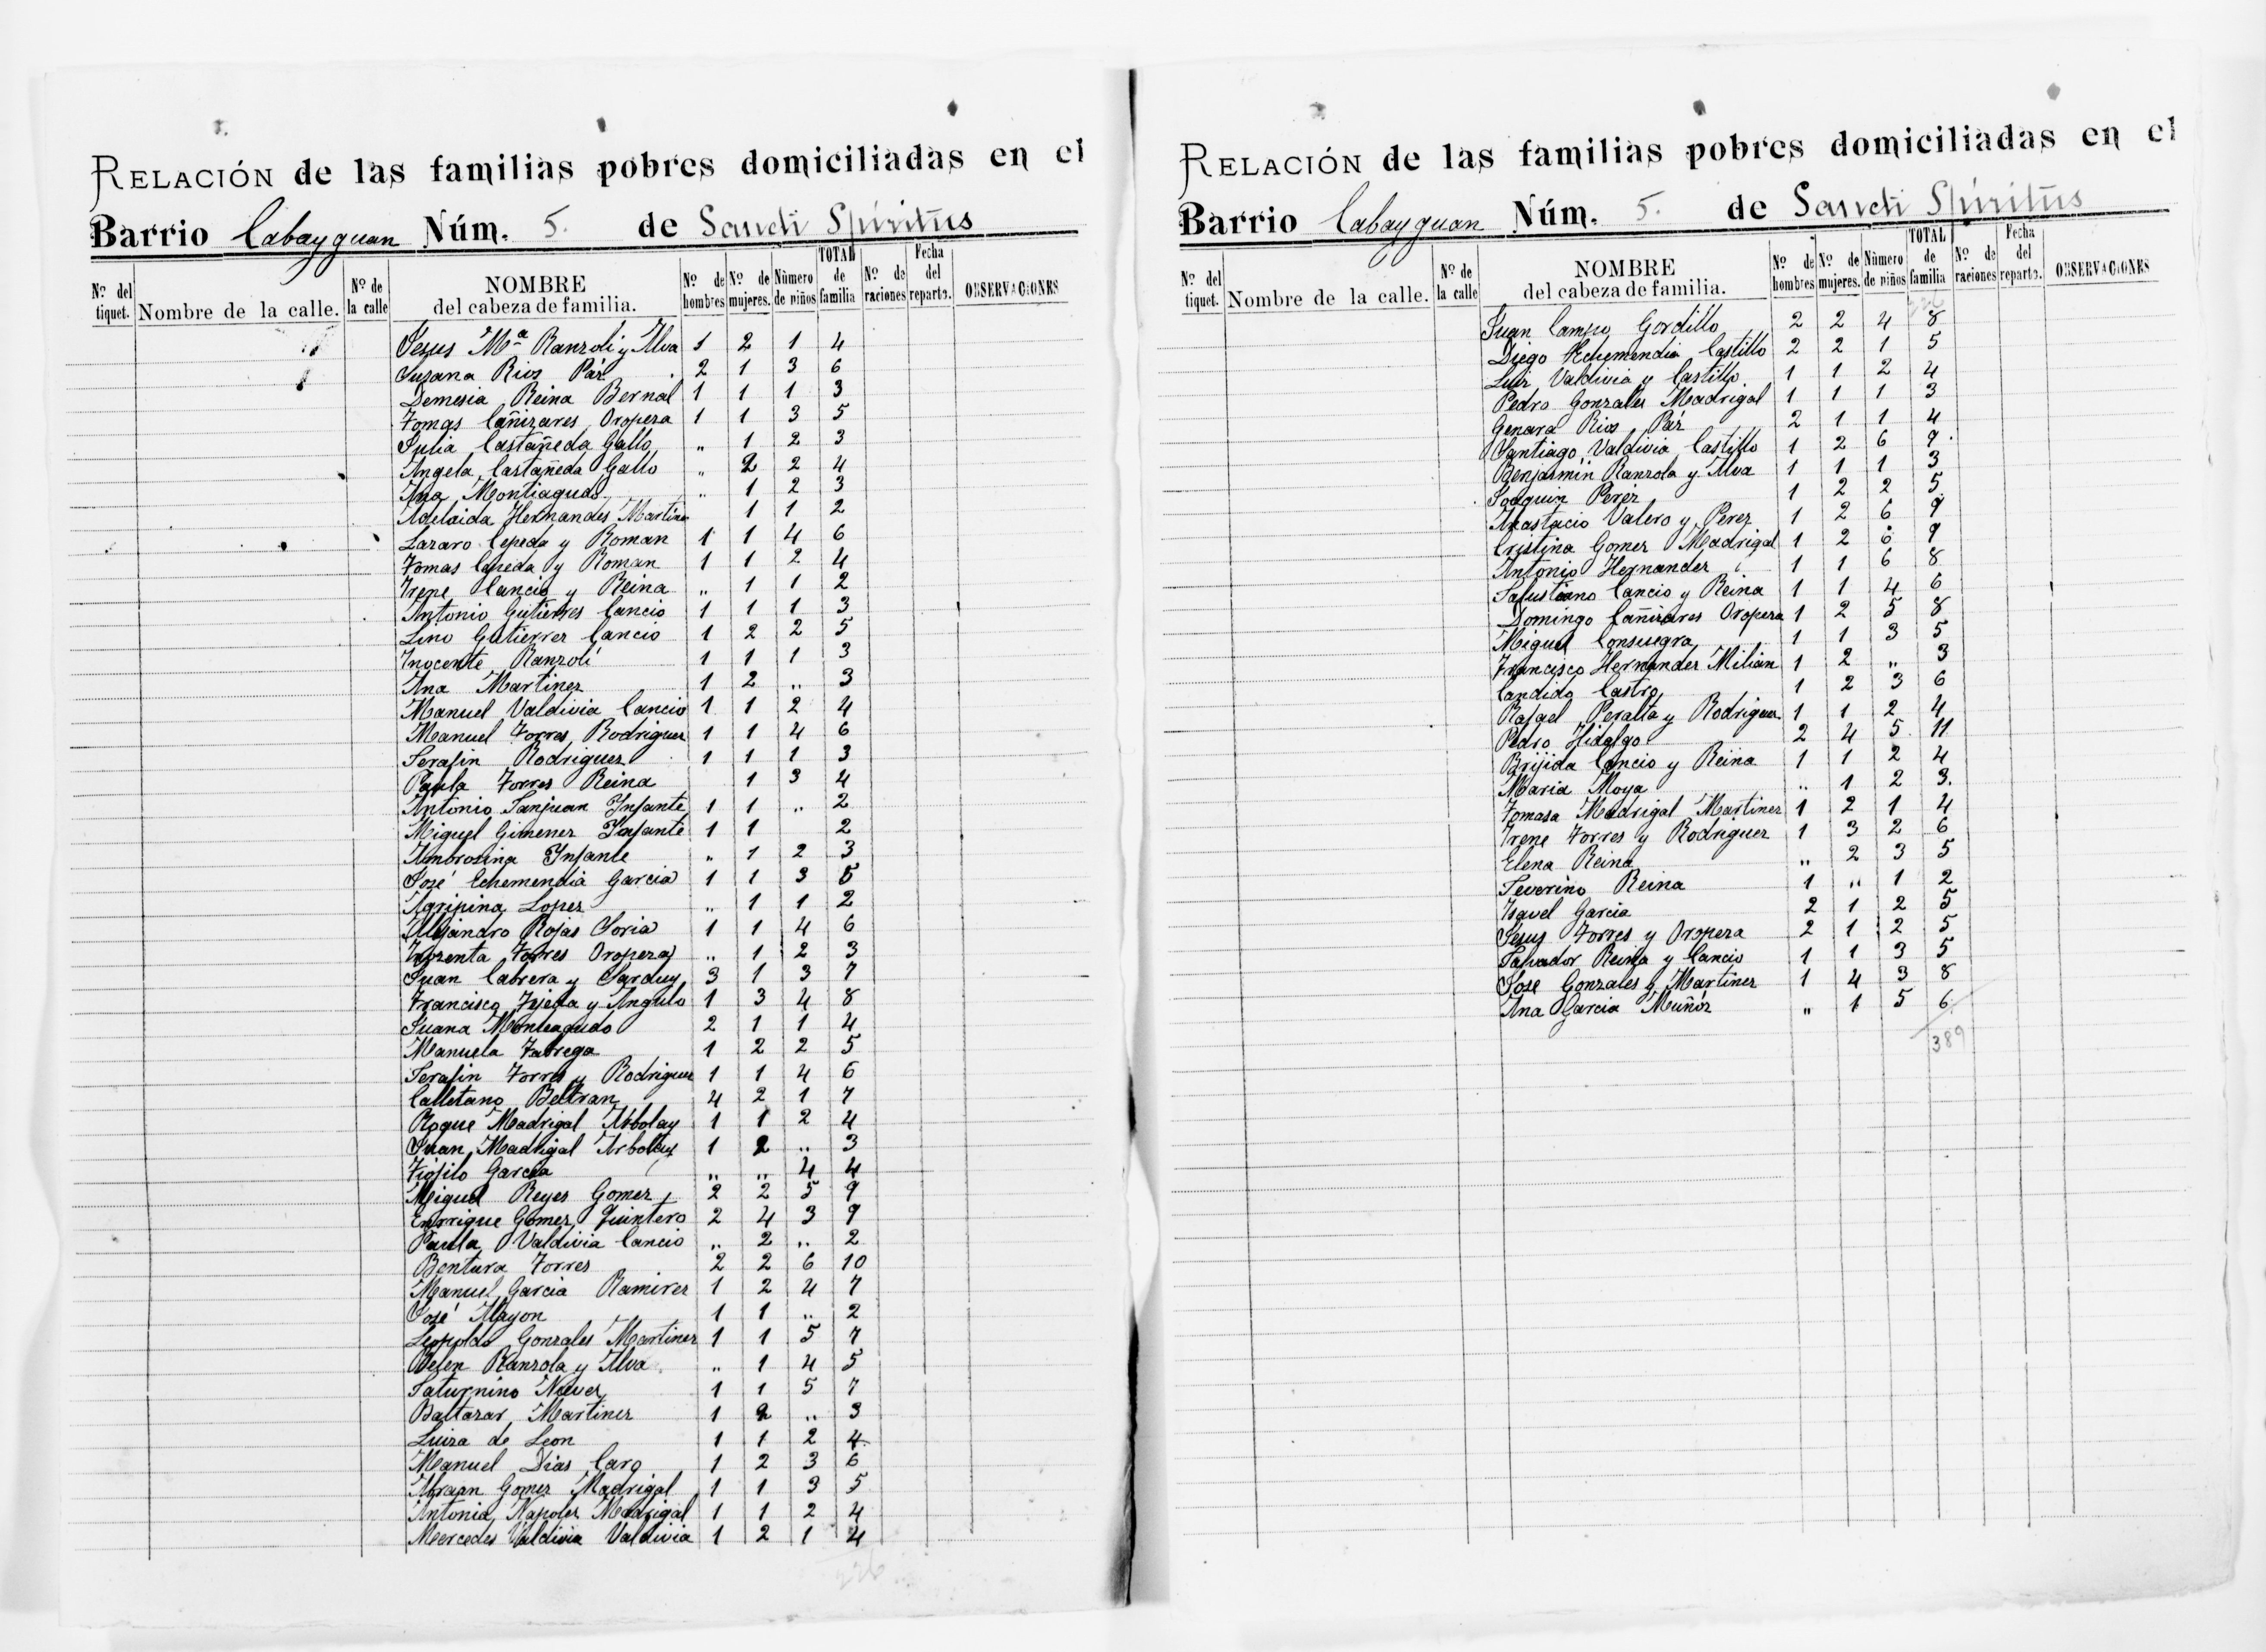 RELACIÓN de las familias pobres domiciliadas en el
Barrio Cabayguan Núm. 5. de Sancti Spíritus
Nº del tiquet. Nombre de la calle. Nº de la calle NOMBRE del cabeza de familia. Nº de hombres Nº de mujeres. Número de niños TOTAL de familia Nº de raciones Fecha del reparto. OBSERVACIONES
Jesus Mª Ranzoli y Alva 1 2 1 4
Susana Rios Páz 2 1 3 6
Demesia Reina Bernal 1 1 1 3
Tomas Cañizares Oropeza 1 1 3 5
Julia Castañeda Gallo „ 1 2 3
Angela Castañeda Gallo „ 2 2 4
Ana Montiagudo „ 1 2 3
Adelaida Hernandes Martinez 1 1 2
Lazaro Cepeda y Roman 1 1 4 6
Tomas Cepeda y Roman 1 1 2 4
Irene Cancio y Reina „ 1 1 2
Antonio Gutierres Cancio 1 1 1 3
Lino Gutierrez Cancio 1 2 2 5
Inocente Ranzoli 1 1 1 3
Ana Martinez 1 2 „ 3
Manuel Valdivia Cancio 1 1 2 4
Manuel Torres Rodriguez 1 1 4 6
Serafin Rodriguez 1 1 1 3
Paula Torres Reina 1 3 4
Antonio Sanjuan Ynfante 1 1 „ 2
Miguel Gimenez Ynfante 1 1 2
Ambrosina Ynfante „ 1 2 3
José Echemendia Garcia 1 1 3 5
Agripina Lopez „ 1 1 2
Alejandro Rojas Soria 1 1 4 6
Torres Oropeza „ 1 2 3
Juan Cabrera y Sarduy 3 1 3 7
Francisco Tejeda y Angulo 1 3 4 8
Juana Monteagudo 2 1 1 4
Manuela Fabrega 1 2 2 5
Serafin Torres y Rodriguez 1 1 4 6
Calletano Beltran 4 2 1 7
Roque Madrigal Arbolay 1 1 2 4
Juan Madrigal Arbolay 1 2 „ 3
Garcia „ „ 4 4
Miguel Reyes Gomez 2 2 5 9
Enrrique Gomez Quintero 2 4 3 9
Paula Valdivia Cancio „ 2 „ 2
Bentura Torres 2 2 6 10
Manuel Garcia Ramirez 1 2 4 7
José Mayon 1 1 „ 2
Leopoldo Gonzales Martinez 1 1 5 7
Belen Ranzola y Alva „ 1 4 5
Saturnino Nuves 1 1 5 7
Baltazar Martinez 1 2 „ 3
Luiza de Leon 1 1 2 4
Manuel Dias Caro 1 2 3 6
Abraan Gomez Madrigal 1 1 3 5
Antonia Napoles Madrigal 1 1 2 4
Mercedes Valdivia Valdivia 1 2 1 4
RELACIÓN de las familias pobres domiciliadas en el
Barrio Cabayguan Núm. 5. de Sancti Spíritus
Nº del tiquet. Nombre de la calle. Nº de la calle NOMBRE del cabeza de familia. Nº de hombres Nº de mujeres. Número de niños TOTAL de familia Nº de raciones Fecha del reparto. OBSERVACIONES
Juan Campo Gordillo 2 2 4 8
Diego Echemendia Castillo 2 2 1 5
Luis Valdivia y Castillo 1 1 2 4
Pedro Gonzales Madrigal 1 1 1 3
Genara Rios Páz 2 1 1 4
Santiago Valdivia Castillo 1 2 6 9
Benjasmin Ranzola y Alva 1 1 1 3
Joaquin Perez 1 2 2 5
Anastacio Valero y Perez 1 2 6 9
Cristina Gomez Madrigal 1 2 6 9
Antonio Hernandez 1 1 6 8
Salustiano Cancio y Reina 1 1 4 6
Domingo Cañizares Oropeza 1 2 5 8
Miguel Consuegra 1 1 3 5
Francisco Hernandez Milián 1 2 „ 3
Candido Castro 1 2 3 6
Rafael Peralta y Rodriguez 1 1 2 4
Pedro Hidalgo 2 4 5 11
Brijida Cancio y Reina 1 1 2 4
Maria Moya „ 1 2 3.
Tomasa Madrigal Martinez 1 2 1 4
Irene Torres y Rodriguez 1 3 2 6
Elena Reina „ 2 3 5
Severino Reina 1 „ 1 2
Ysavel Garcia 2 1 2 5
Jesus Torres y Oropeza 2 1 2 5
Salvador Reina y Cancio 1 1 3 5
Jose Gonzales y Martinez 1 4 3 8
Ana Garcia Muñóz „ 1 5 6
389